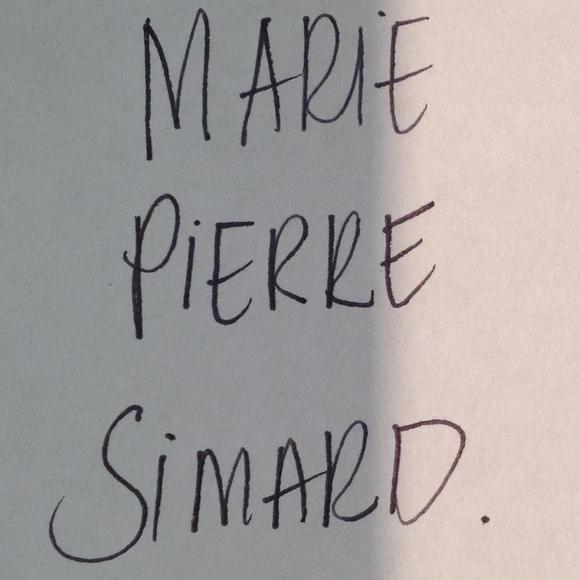 MARiE
PiERRE
SiMARD.